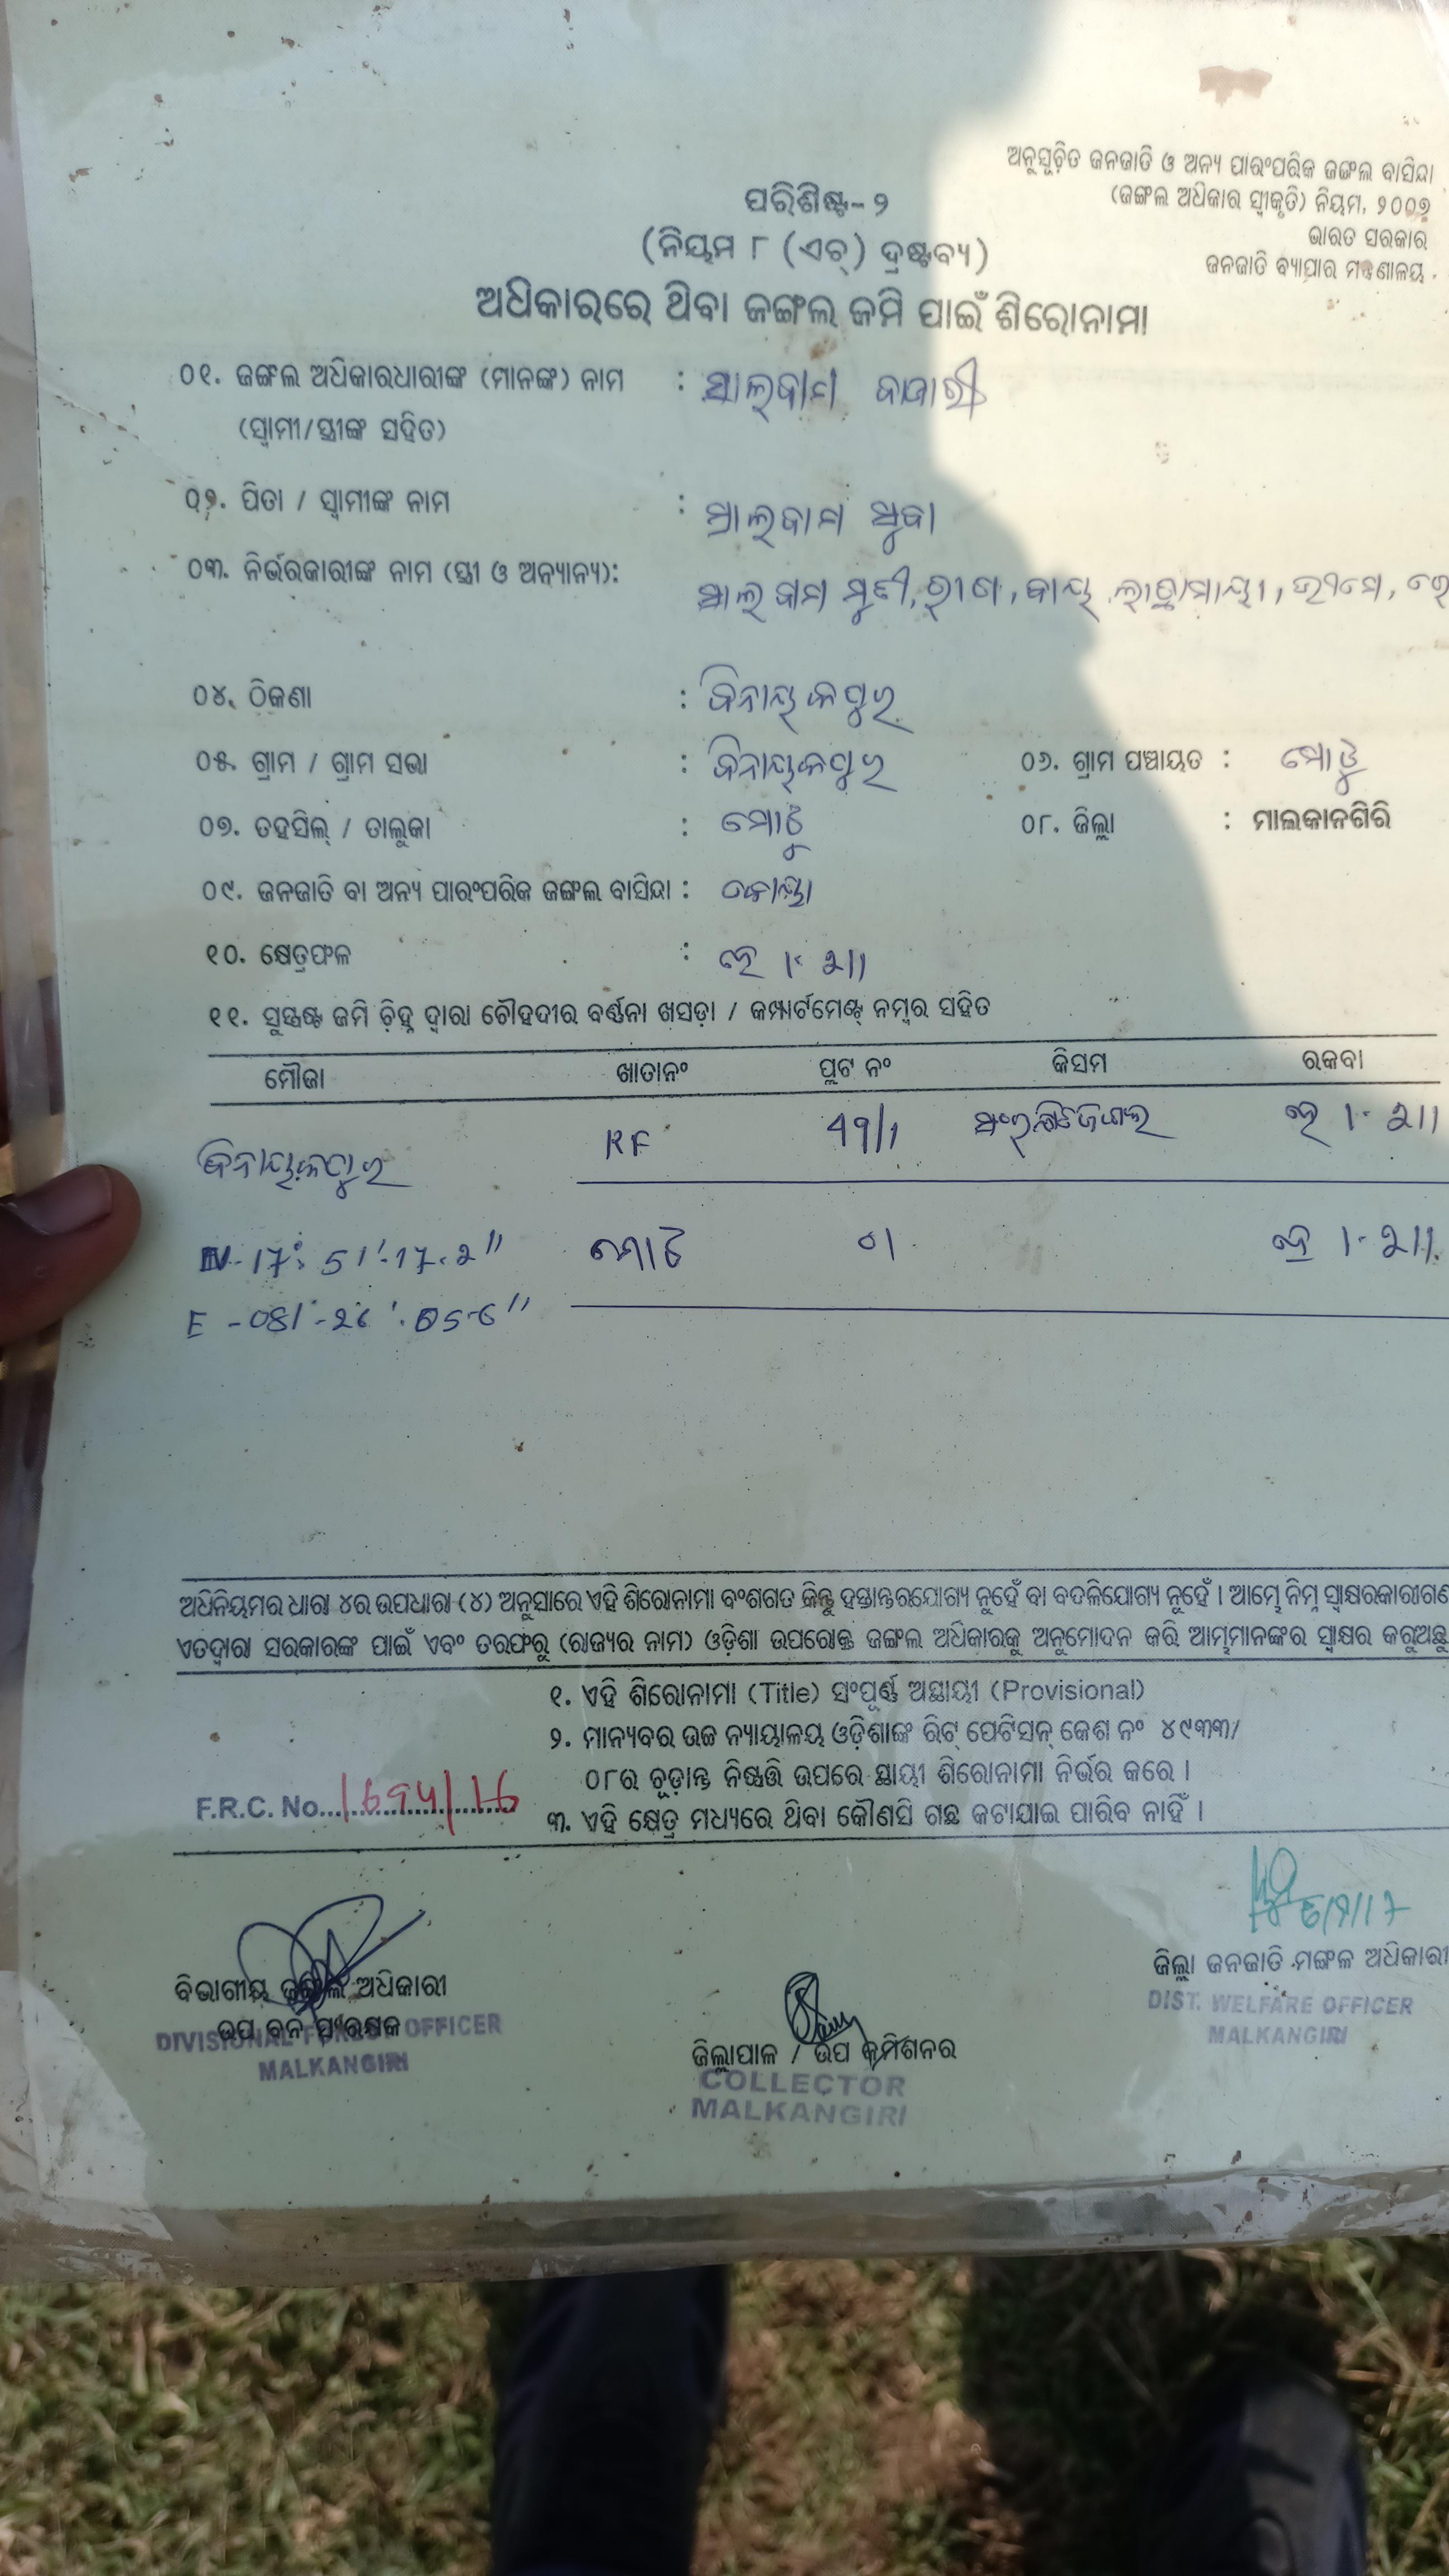 ଅନୁସୂଚିତ ଜନଜାତି ଓ ଅନ୍ୟ ପାରଂପରିକ ଜଙ୍ଗଲ ବାସିନ୍ଦା
(ଜଙ୍ଗଲ ଅଧିକାର ସ୍ୱୀକୃତି) ନିୟମ, ୨୦୦୭
ଭାରତ ସରକାର
ଜନଜାତି ବ୍ୟାପାର ମନ୍ତ୍ରଣାଳୟ
ପରିଶିଷ୍ଟ-୨
(ନିୟମ ୮ (ଏଚ୍) ଦ୍ରଷ୍ଟବ୍ୟ)
ଅଧିକାରରେ ଥିବା ଜଙ୍ଗଲ ଜମି ପାଇଁ ଶିରୋନାମା
୦୧. ଜଙ୍ଗଲ ଅଧିକାରଧାରୀଙ୍କ (ମାନଙ୍କ) ନାମ :
(ସ୍ୱାମୀ/ସ୍ତ୍ରୀଙ୍କ ସହିତ)
୦୨. ପିତା / ସ୍ୱାମୀଙ୍କ ନାମ :
୦୩. ନିର୍ଭରକାରୀଙ୍କ ନାମ (ସ୍ତ୍ରୀ ଓ ଅନ୍ୟାନ୍ୟ):
୦୪. ଠିକଣା : ବିନାୟକପୁର
୦୫. ଗ୍ରାମ / ଗ୍ରାମ ସଭା : ବିନାୟକପୁର ୦୬. ଗ୍ରାମ ପଞ୍ଚାୟତ : ମୋଟୁ
୦୭. ତହସିଲ୍ / ତାଲୁକା : ମୋଟୁ ୦୮. ଜିଲ୍ଲା : ମାଲକାନଗିରି
୦୯. ଜନଜାତି ବା ଅନ୍ୟ ପାରଂପରିକ ଜଙ୍ଗଲ ବାସିନ୍ଦା : କୋୟା
୧୦. କ୍ଷେତ୍ରଫଳ : ହେ
୧୧. ସୁସ୍ପଷ୍ଟ ଜମି ଚିହ୍ନ ଦ୍ୱାରା ଚୌହଦୀର ବର୍ଣ୍ଣନା ଖସଡ଼ା / କମ୍ପାର୍ଟମେଣ୍ଟ୍ ନମ୍ବର ସହିତ
ମୌଜା ଖାତାନଂ ପ୍ଲଟ ନଂ କିସମ ରକବା
ବିନାୟକପୁର RF ହେ
N-17° 51'-17.2" ମୋଟ ୦୧ ହେ
E -081°-26'.05-6"
ଅଧିନିୟମର ଧାରା ୪ର ଉପଧାରା (୪) ଅନୁସାରେ ଏହି ଶିରୋନାମା ବଂଶଗତ କିନ୍ତୁ ହସ୍ତାନ୍ତରଯୋଗ୍ୟ ନୁହେଁ ବା ବଦଳିଯୋଗ୍ୟ ନୁହେଁ । ଆମ୍ଭେ ନିମ୍ନ ସ୍ୱାକ୍ଷରକାରୀଗଣ
ଏତଦ୍ୱାରା ସରକାରଙ୍କ ପାଇଁ ଏବଂ ତରଫରୁ (ରାଜ୍ୟର ନାମ) ଓଡ଼ିଶା ଉପରୋକ୍ତ ଜଙ୍ଗଲ ଅଧିକାରକୁ ଅନୁମୋଦନ କରି ଆମ୍ଭମାନଙ୍କର ସ୍ୱାକ୍ଷର କରୁଅଛୁ
୧. ଏହି ଶିରୋନାମା (Title) ସଂପୂର୍ଣ୍ଣ ଅସ୍ଥାୟୀ (Provisional)
୨. ମାନ୍ୟବର ଉଚ୍ଚ ନ୍ୟାୟାଳୟ ଓଡ଼ିଶାଙ୍କ ରିଟ୍ ପେଟିସନ୍ କେଶ ନଂ ୪୯୩୩/
୦୮ର ଚୂଡ଼ାନ୍ତ ନିଷ୍ପତ୍ତି ଉପରେ ସ୍ଥାୟୀ ଶିରୋନାମା ନିର୍ଭର କରେ ।
F.R.C. No.
୩. ଏହି କ୍ଷେତ୍ର ମଧ୍ୟରେ ଥିବା କୌଣସି ଗଛ କଟାଯାଇ ପାରିବ ନାହିଁ ।
ବିଭାଗୀୟ ଜଙ୍ଗଲ ଅଧିକାରୀ
ଉପ ବନ ସଂରକ୍ଷକ
DIVISIONAL FOREST OFFICER
MALKANGIRI
ଜିଲ୍ଲାପାଳ / ଉପ କମିଶନର
COLLECTOR
MALKANGIRI
ଜିଲ୍ଲା ଜନଜାତି ମଙ୍ଗଳ ଅଧିକାରୀ
DIST. WELFARE OFFICER
MALKANGIRI